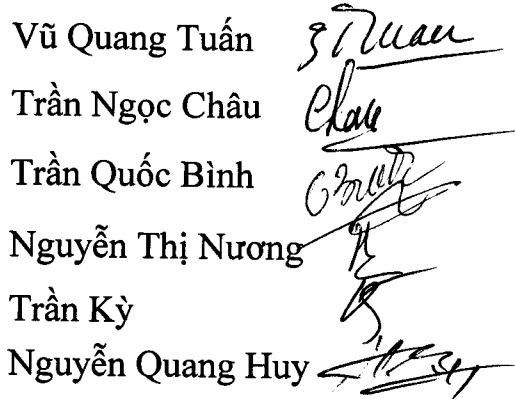 Vũ Quang Tuấn
Trần Ngọc Châu
Trần Quốc Bình
Nguyễn Thị Nương
Trần Kỳ
Nguyễn Quang Huy